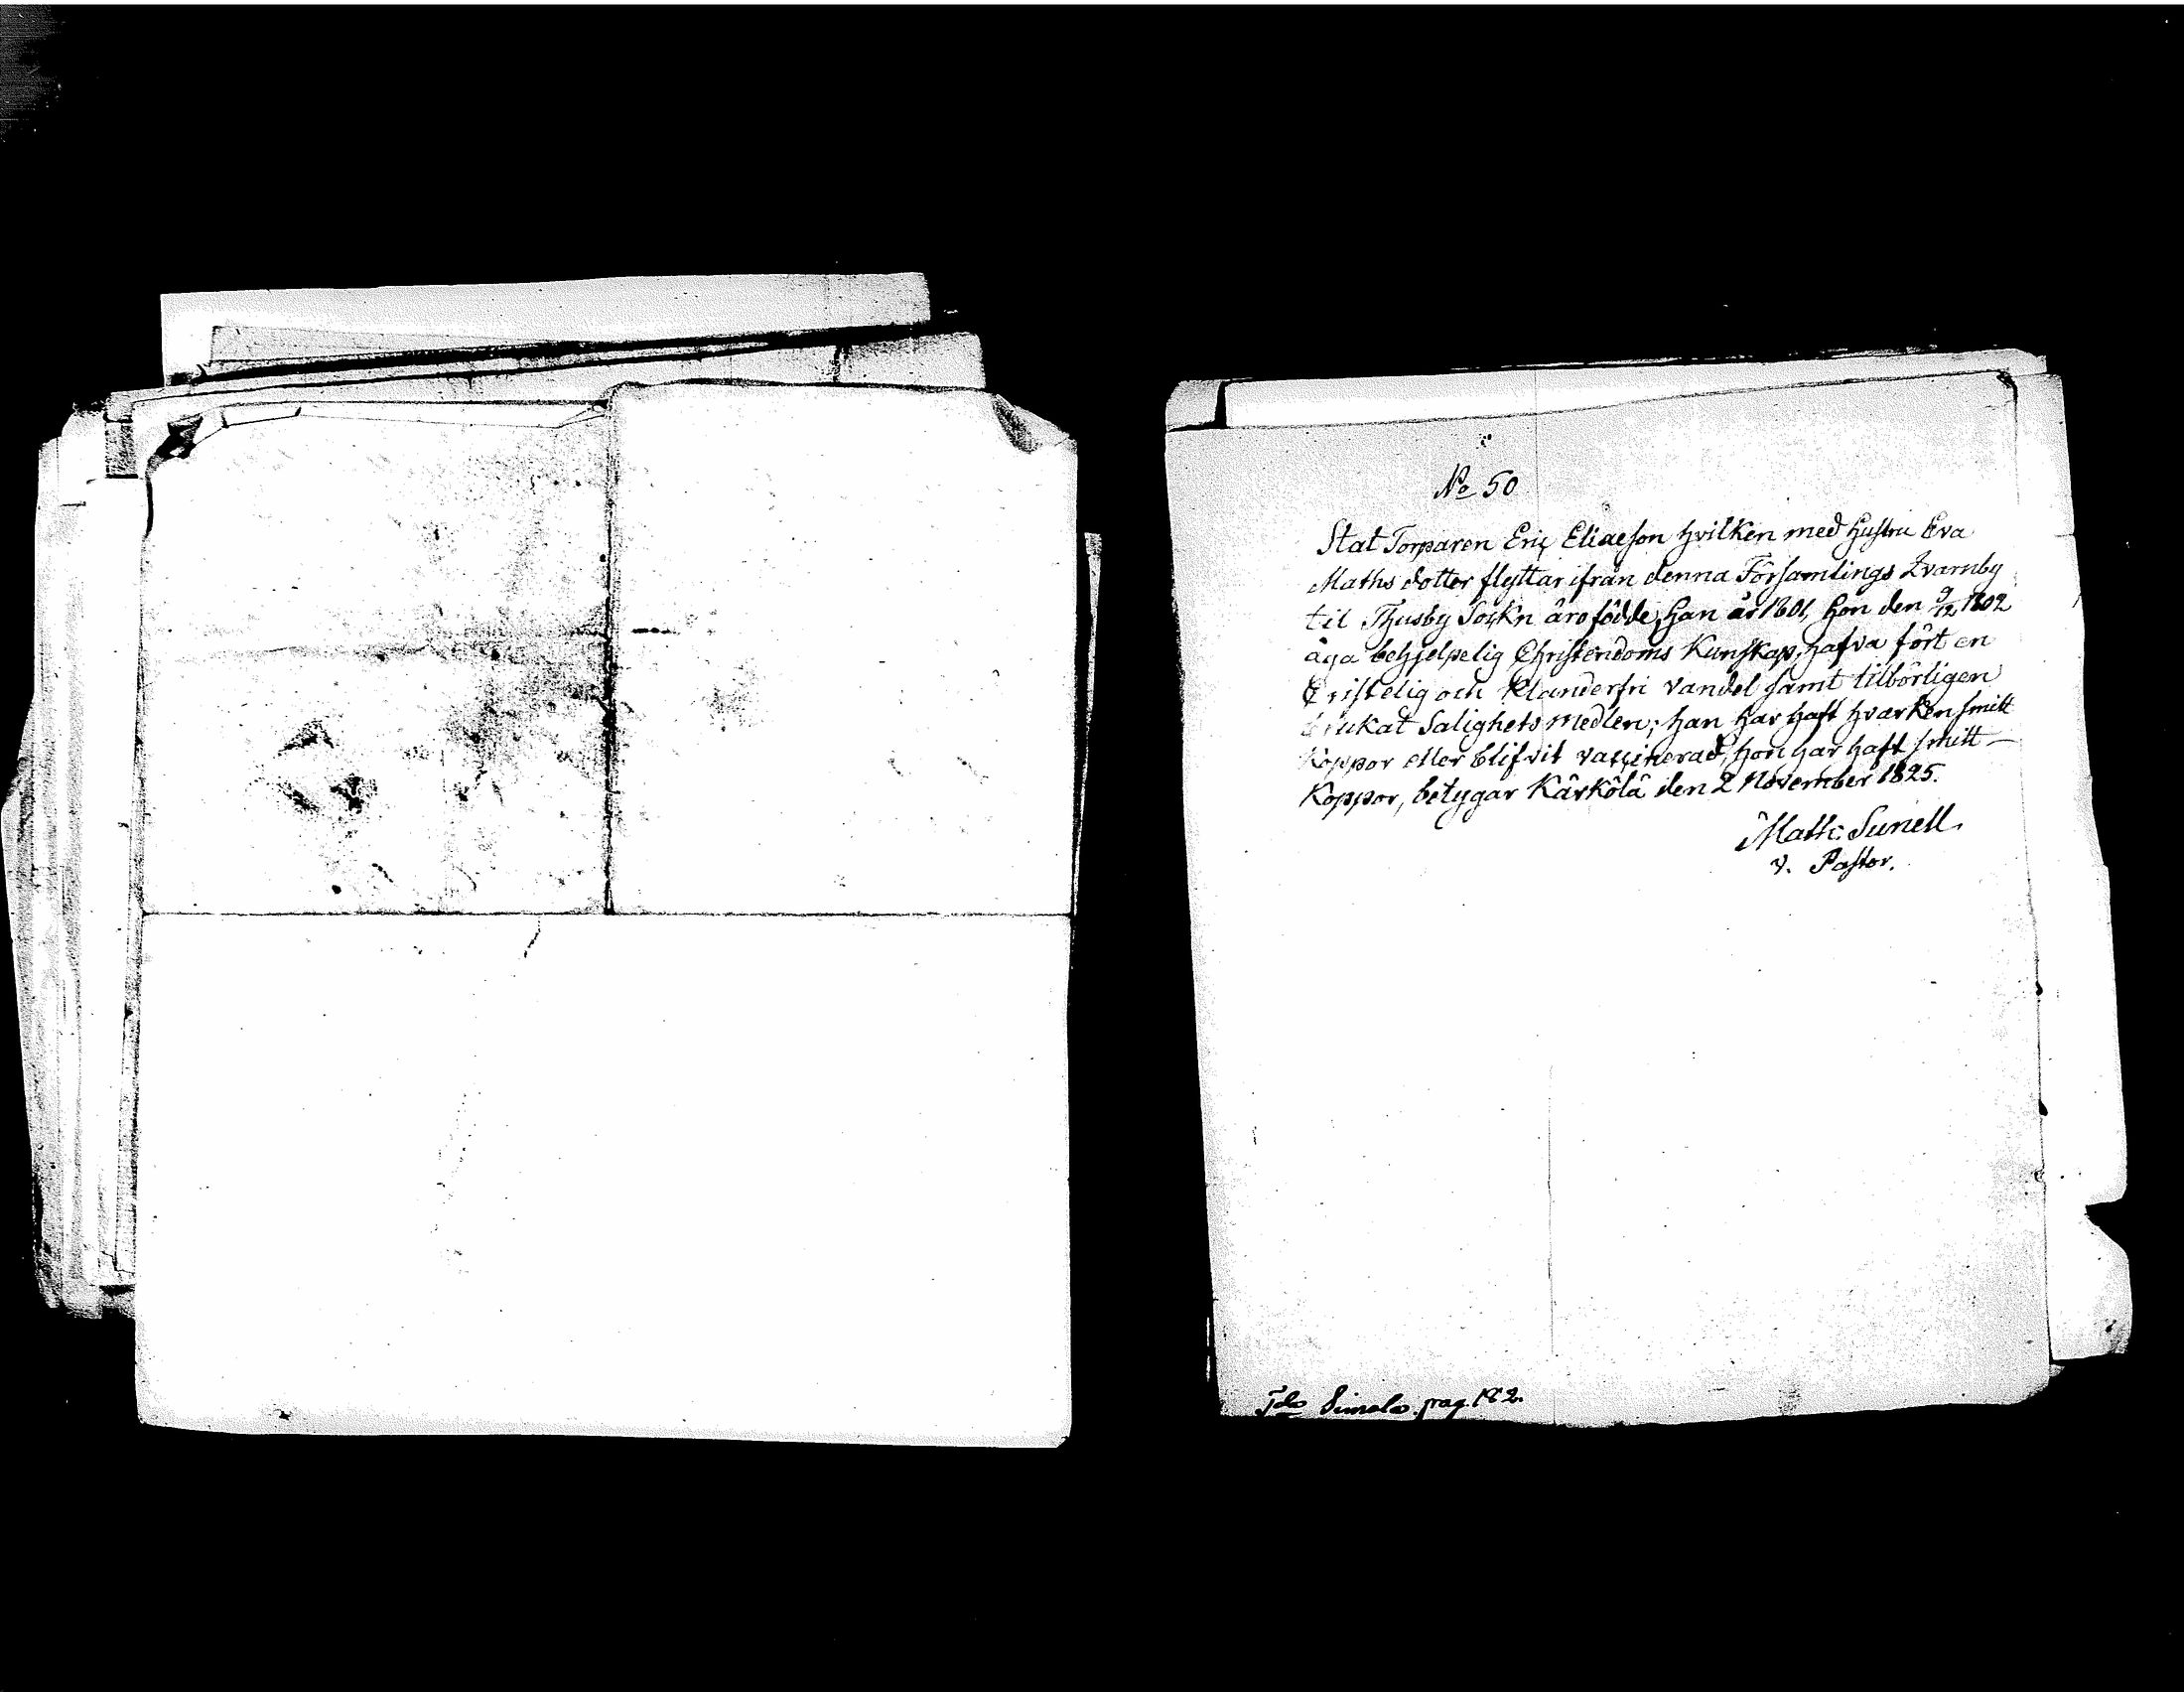 No 50
Stat Torparen Eric Eliaeson hvilken med hustru Eva
Maths dotter flyttar ifrån denna Församlings Qvarnby
til Thusby Sockn äro födde, han år 1801, hon den 9/12 1802
äga behjelpelig Christendoms Kunskap, hafva fört en
Christelig och Klanderfri vandel samt tilbörligen
brukat Salighets medlen; han har haft hvarken smitt
Koppor eller blifvit vaccinerad, hon har haft smitt-
Koppor, betygar Kärkölä den 2 November 1825.
Math: Sunell.
v. Pastor.
pag. 182.